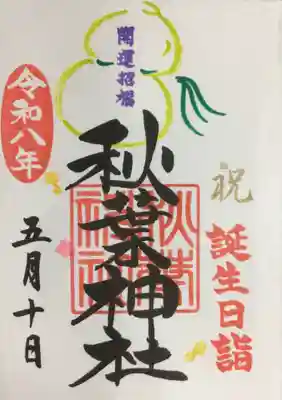 開運招福
祝
誕生日詣
秋葉神社
秋葉
神社
令和八年
五月十日